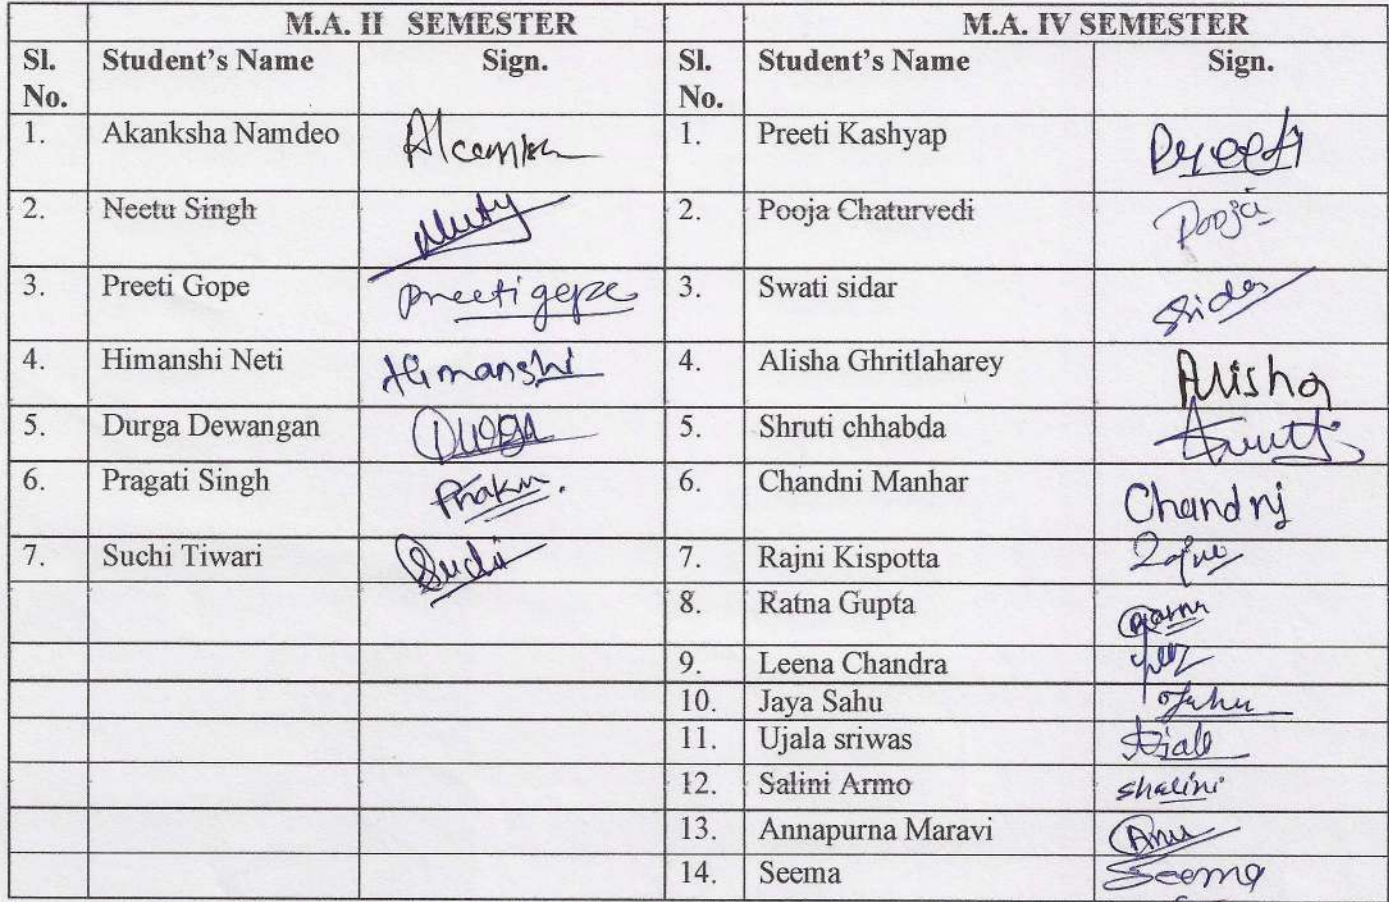 M.A. II SEMESTER M.A. IV SEMESTER
Sl. No. Student's Name Sign. Sl. No. Student's Name Sign.
1. Akanksha Namdeo 1. Preeti Kashyap Preeti
2. Neetu Singh 2. Pooja Chaturvedi Pooja
3. Preeti Gope Preeti gope 3. Swati sidar Sidar
4. Himanshi Neti Himanshi 4. Alisha Ghritlaharey Alisha
5. Durga Dewangan Durga 5. Shruti chhabda Shruti
6. Pragati Singh 6. Chandni Manhar Chandni
7. Suchi Tiwari Suchi 7. Rajni Kispotta
8. Ratna Gupta
9. Leena Chandra
10. Jaya Sahu
11. Ujala sriwas
12. Salini Armo shalini
13. Annapurna Maravi Anu
14. Seema Seema